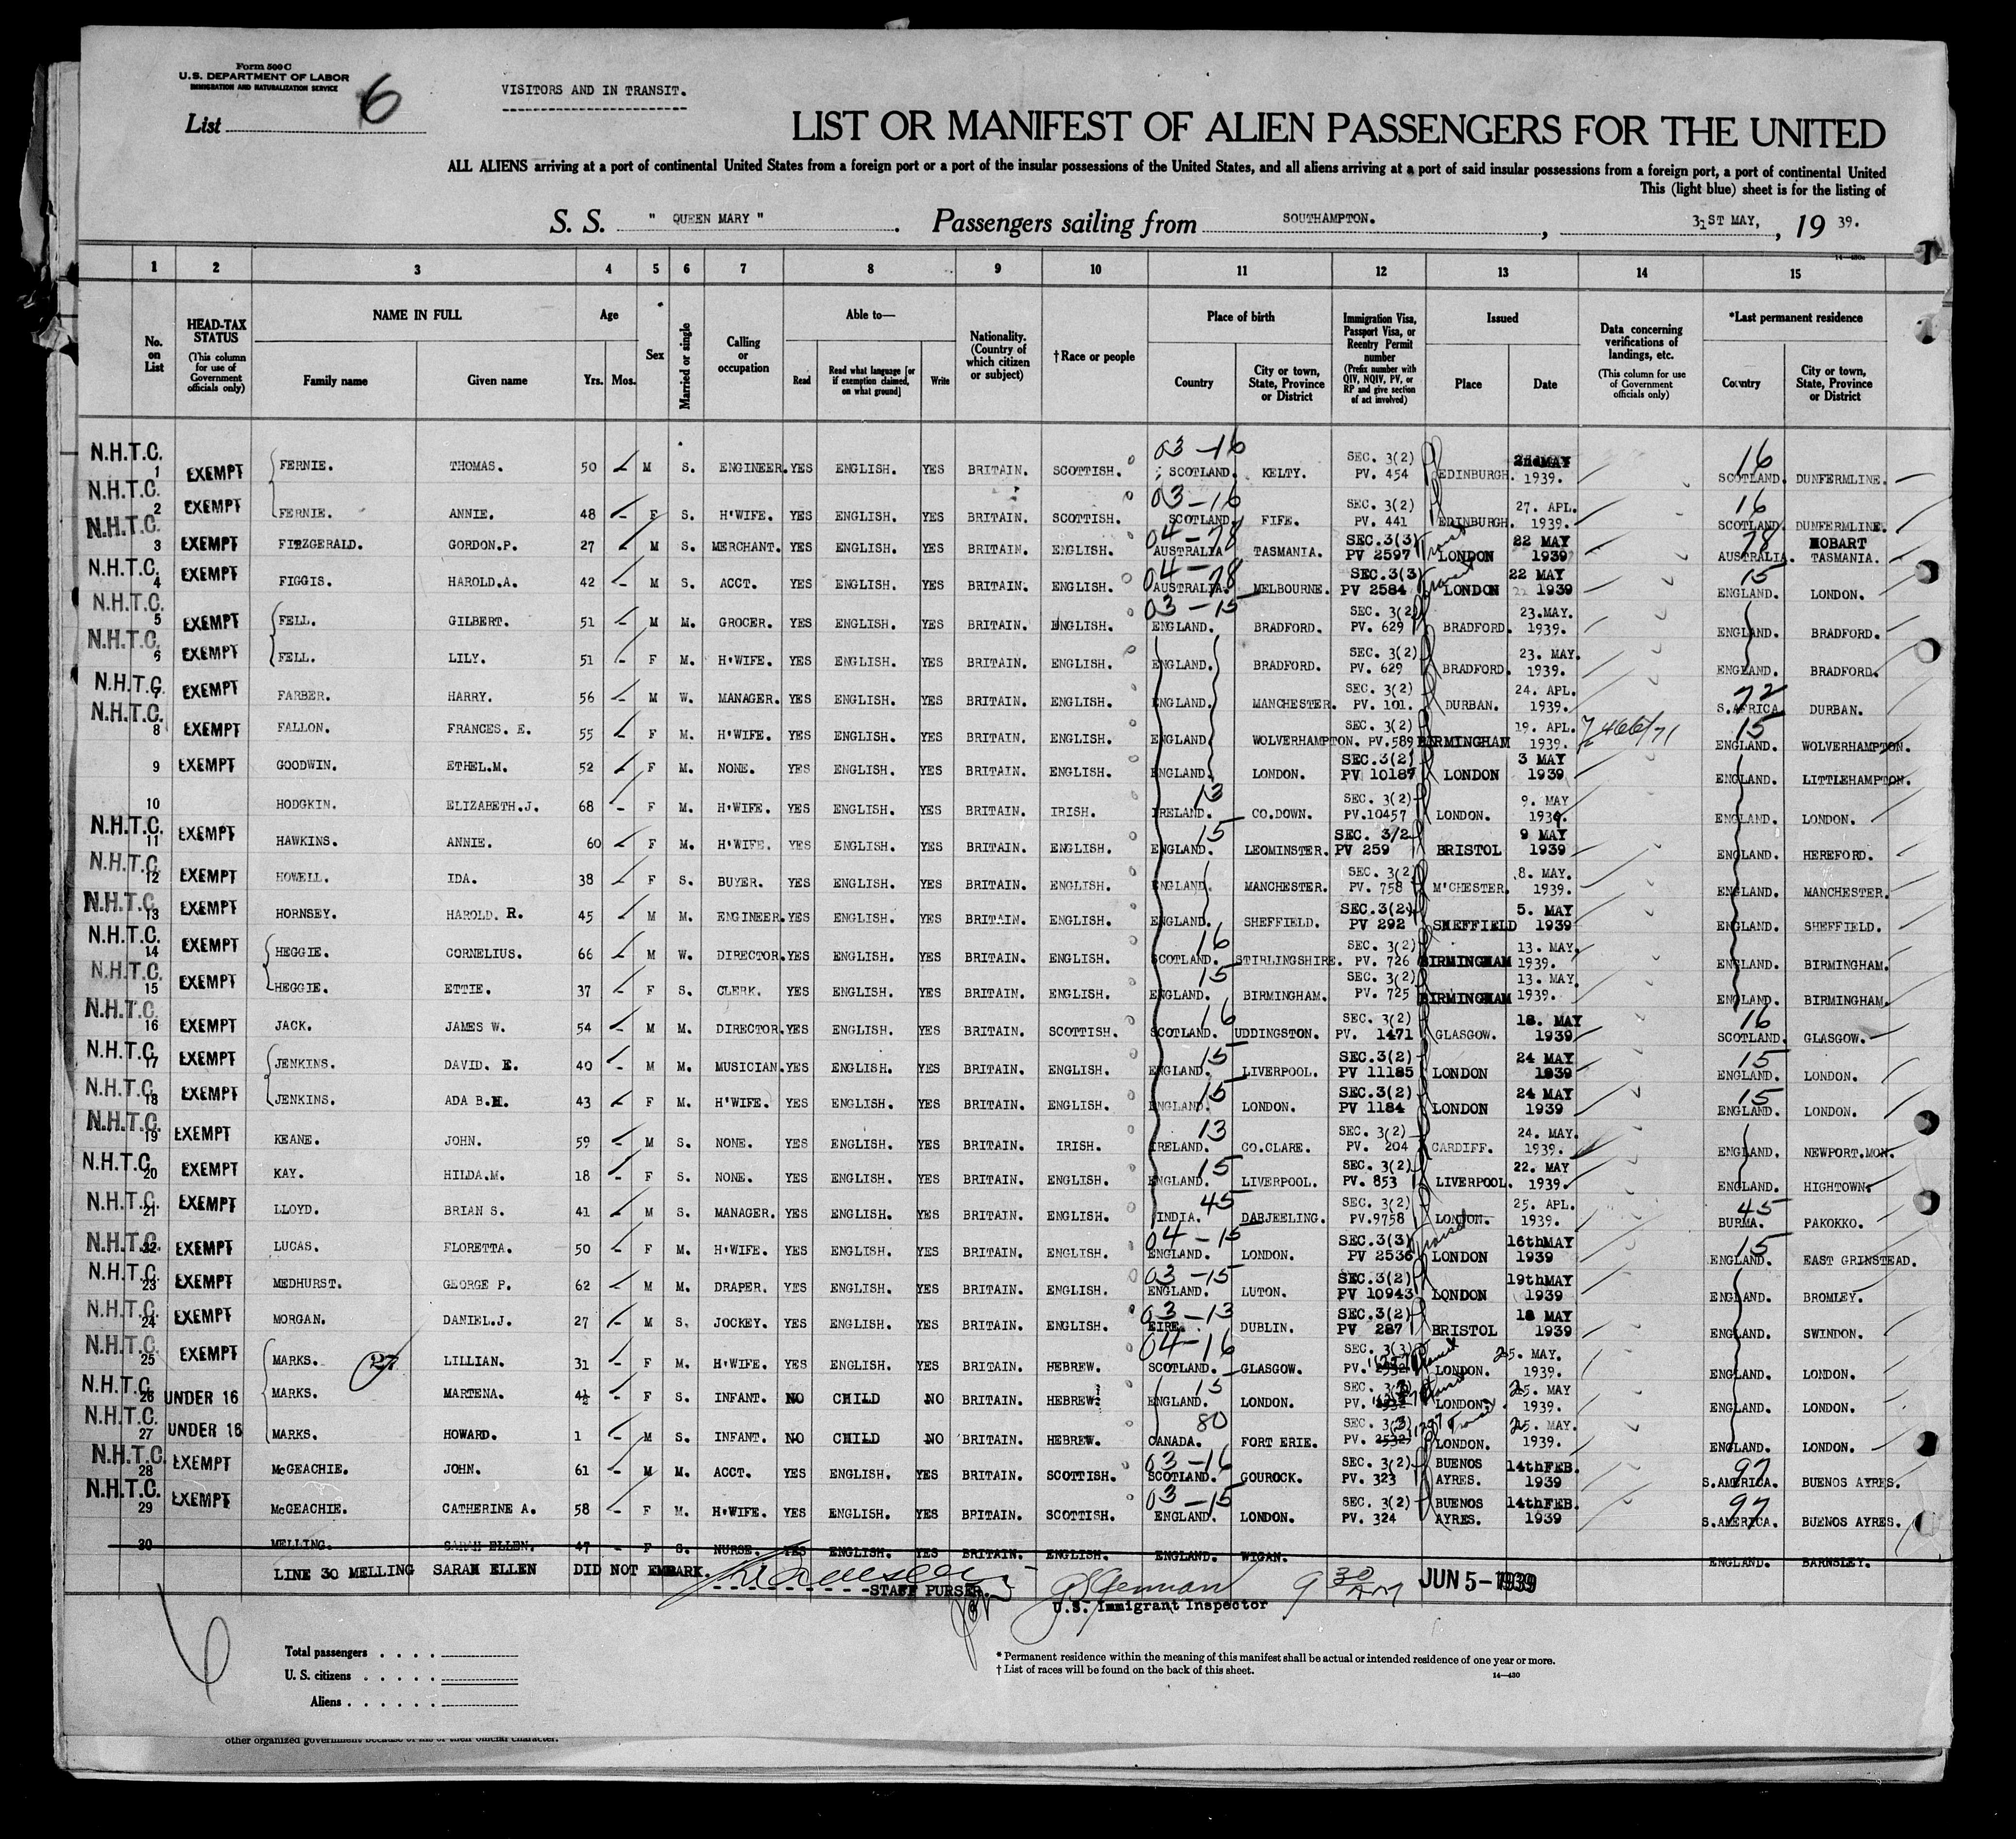 Form 500 C
U.S. DEPARTMENT OF LABOR
IMMIGRATION AND NATURALIZATION SERVICE
List 6
VISITORS AND IN TRANSIT.
LIST OR MANIFEST OF ALIEN PASSENGERS FOR THE UNITED
ALL ALIENS arriving at a port of continental United States from a foreign port or a port of the insular possessions of the United States, and all aliens arriving at a port of said insular possessions from a foreign port, a port of continental United
This (light blue) sheet is for the listing of
S. S. " QUEEN MARY ". Passengers sailing from SOUTHAMPTON. , 31ST MAY, , 19 39.
14-430a
1 2 3 4 5 6 7 8 9 10 11 12 13 14 15
No. on List
HEAD-TAX STATUS (This column for use of Government officials only)
NAME IN FULL Family name Given name
Age Yrs. Mos.
Sex
Married or single
Calling or occupation
Able to— Read Read what language [or if exemption claimed, on what ground] Write
Nationality. (Country of which citizen or subject)
†Race or people
Place of birth Country City or town, State, Province or District
Immigration Visa, Passport Visa, or Reentry Permit number (Prefix number with QIV, NQIV, PV, or RP and give section of act involved)
Issued Place Date
Data concerning verifications of landings, etc. (This column for use of Government officials only)
*Last permanent residence Country City or town, State, Province or District
N.H.T.C. 1 EXEMPT FERNIE. THOMAS. 50 M S. ENGINEER. YES ENGLISH. YES BRITAIN. SCOTTISH. 03-16 SCOTLAND. KELTY. SEC. 3(2) PV. 454 EDINBURGH. 2nd MAY 1939. 16 SCOTLAND. DUNFERMLINE.
N.H.T.C. 2 EXEMPT FERNIE. ANNIE. 48 - F S. H'WIFE. YES ENGLISH. YES BRITAIN. SCOTTISH. 03-16 SCOTLAND. FIFE. SEC. 3(2) PV. 441 EDINBURGH. 27. APL. 1939. 16 SCOTLAND. DUNFERMLINE.
N.H.T.C. 3 EXEMPT FITZGERALD. GORDON.P. 27 M S. MERCHANT. YES ENGLISH. YES BRITAIN. ENGLISH. 04-78 AUSTRALIA TASMANIA. SEC.3(3) PV 2597 Transit LONDON 22 MAY 1939 78 AUSTRALIA. HOBART TASMANIA.
N.H.T.C. 4 EXEMPT FIGGIS. HAROLD.A. 42 - M S. ACCT. YES ENGLISH. YES BRITAIN. ENGLISH. 04-78 AUSTRALIA. MELBOURNE. SEC.3(3) PV 2584 Transit LONDON 22 MAY 1939 15 ENGLAND. LONDON.
N.H.T.C. 5 EXEMPT FELL. GILBERT. 51 - M M. GROCER. YES ENGLISH. YES BRITAIN. ENGLISH. 03-15 ENGLAND. BRADFORD. SEC. 3(2) PV. 629 BRADFORD. 23.MAY. 1939. ENGLAND. BRADFORD.
N.H.T.C. 6 EXEMPT FELL. LILY. 51 - F M. H'WIFE. YES ENGLISH. YES BRITAIN. ENGLISH. ENGLAND. BRADFORD. SEC. 3(2) PV. 629 BRADFORD. 23. MAY. 1939. ENGLAND. BRADFORD.
N.H.T.C. 7 EXEMPT FARBER. HARRY. 56 - M W. MANAGER. YES ENGLISH. YES BRITAIN. ENGLISH. ENGLAND. MANCHESTER. SEC. 3(2) PV. 101. DURBAN. 24. APL. 1939. 72 S.AFRICA DURBAN.
N.H.T.C. 8 EXEMPT FALLON. FRANCES. E. 55 - F M. H'WIFE. YES ENGLISH. YES BRITAIN. ENGLISH. ENGLAND WOLVERHAMPTON. SEC. 3(2) PV.589 BIRMINGHAM 19. APL. 1939. 15 ENGLAND. WOLVERHAMPTON.
9 EXEMPT GOODWIN. ETHEL.M. 52 - F M. NONE. YES ENGLISH. YES BRITAIN. ENGLISH. ENGLAND. LONDON. SEC.3(2) PV 10187 LONDON 3 MAY 1939 ENGLAND. LITTLEHAMPTON.
10 HODGKIN. ELIZABETH.J. 68 - F M. H'WIFE. YES ENGLISH. YES BRITAIN. IRISH. 13 IRELAND. CO.DOWN. SEC. 3(2) PV.10457 LONDON. 9. MAY 1939. ENGLAND. LONDON.
N.H.T.C. 11 EXEMPT HAWKINS. ANNIE. 60 - F M. H'WIFE. YES ENGLISH. YES BRITAIN. ENGLISH. 15 ENGLAND. LEOMINSTER. SEC. 3/2 PV 259 BRISTOL 9 MAY 1939 ENGLAND. HEREFORD.
N.H.T.C. 12 EXEMPT HOWELL. IDA. 38 - F S. BUYER. YES ENGLISH. YES BRITAIN. ENGLISH. ENGLAND. MANCHESTER. SEC. 3(2) PV. 758 M'CHESTER. 8. MAY. 1939. ENGLAND. MANCHESTER.
N.H.T.C. 13 EXEMPT HORNSEY. HAROLD. R. 45 M M. ENGINEER. YES ENGLISH. YES BRITAIN. ENGLISH. ENGLAND. SHEFFIELD. SEC.3(2) PV 292 SHEFFIELD 5. MAY 1939 ENGLAND. SHEFFIELD.
N.H.T.C. 14 EXEMPT HEGGIE. CORNELIUS. 66 - M W. DIRECTOR. YES ENGLISH. YES BRITAIN. ENGLISH. 16 SCOTLAND. STIRLINGSHIRE. SEC. 3(2) PV. 726 BIRMINGHAM 13. MAY. 1939. ENGLAND. BIRMINGHAM.
N.H.T.C. 15 EXEMPT HEGGIE. ETTIE. 37 - F S. CLERK. YES ENGLISH. YES BRITAIN. ENGLISH. 15 ENGLAND. BIRMINGHAM. SEC. 3(2) PV. 725 BIRMINGHAM 13. MAY. 1939. ENGLAND. BIRMINGHAM.
N.H.T.C. 16 EXEMPT JACK. JAMES W. 54 - M M. DIRECTOR. YES ENGLISH. YES BRITAIN. SCOTTISH. 16 SCOTLAND. UDDINGSTON. SEC. 3(2) PV. 1471 GLASGOW. 18. MAY 1939. 16 SCOTLAND. GLASGOW.
N.H.T.C. 17 EXEMPT JENKINS. DAVID. E. 40 - M M. MUSICIAN. YES ENGLISH. YES BRITAIN. ENGLISH. 15 ENGLAND. LIVERPOOL. SEC.3(2) PV 11185 LONDON 24 MAY 1939 15 ENGLAND. LONDON.
N.H.T.C. 18 EXEMPT JENKINS. ADA B.H. 43 - F M. H'WIFE. YES ENGLISH. YES BRITAIN. ENGLISH. 15 ENGLAND. LONDON. SEC.3(2) PV 1184 LONDON 24 MAY 1939 15 ENGLAND. LONDON.
N.H.T.C. 19 EXEMPT KEANE. JOHN. 59 - M S. NONE. YES ENGLISH. YES BRITAIN. IRISH. 13 IRELAND. CO.CLARE. SEC. 3(2) PV. 204 CARDIFF. 24. MAY. 1939. ENGLAND. NEWPORT.MON.
N.H.T.C. 20 EXEMPT KAY. HILDA.M. 18 - F S. NONE. YES ENGLISH. YES BRITAIN. ENGLISH. 15 ENGLAND. LIVERPOOL. SEC. 3(2) PV. 853 LIVERPOOL. 22. MAY 1939. ENGLAND. HIGHTOWN.
N.H.T.C. 21 EXEMPT LLOYD. BRIAN S. 41 - M S. MANAGER. YES ENGLISH. YES BRITAIN. ENGLISH. 45 INDIA. DARJEELING. SEC. 3(2) PV.9758 LONDON. 25. APL. 1939. 45 BURMA. PAKOKKO.
N.H.T.C. 22 EXEMPT LUCAS. FLORETTA. 50 - F M. H'WIFE. YES ENGLISH. YES BRITAIN. ENGLISH. 04-15 ENGLAND. LONDON. SEC.3(3) PV 2536 Transit LONDON 16th MAY 1939 15 ENGLAND. EAST GRINSTEAD.
N.H.T.C. 23 EXEMPT MEDHURST. GEORGE P. 62 - M M. DRAPER. YES ENGLISH. YES BRITAIN. ENGLISH. 03-15 ENGLAND. LUTON. SEC.3(2) PV 10943 LONDON 19th MAY 1939 ENGLAND. BROMLEY.
N.H.T.C. 24 EXEMPT MORGAN. DANIEL.J. 27 - M S. JOCKEY. YES ENGLISH. YES BRITAIN. ENGLISH. 03-13 EIRE. DUBLIN. SEC.3(2) PV 287 BRISTOL 18 MAY 1939 ENGLAND. SWINDON.
N.H.T.C. 25 EXEMPT MARKS. LILLIAN. 31 - F M. H'WIFE. YES ENGLISH. YES BRITAIN. HEBREW. 04-16 SCOTLAND. GLASGOW. SEC. 3(3) PV. Transit LONDON. 25. MAY. 1939. ENGLAND. LONDON.
N.H.T.C. 26 UNDER 16 MARKS. MARTENA. 4½ - F S. INFANT. NO CHILD NO BRITAIN. HEBREW. 15 ENGLAND. LONDON. SEC. 3(3) PV. Transit LONDON. 25. MAY 1939. ENGLAND. LONDON.
N.H.T.C. 27 UNDER 16 MARKS. HOWARD. 1 - M S. INFANT. NO CHILD NO BRITAIN. HEBREW. 80 CANADA. FORT ERIE. SEC. 3(3) PV. 2532 Transit LONDON. 25. MAY. 1939. ENGLAND. LONDON.
N.H.T.C. 28 EXEMPT McGEACHIE. JOHN. 61 - M M. ACCT. YES ENGLISH. YES BRITAIN. SCOTTISH. 03-16 SCOTLAND. GOUROCK. SEC. 3(2) PV. 323 BUENOS AYRES. 14th FEB. 1939 97 S.AMERICA. BUENOS AYRES.
N.H.T.C. 29 EXEMPT McGEACHIE. CATHERINE A. 58 - F M. H'WIFE. YES ENGLISH. YES BRITAIN. SCOTTISH. 03-15 ENGLAND. LONDON. SEC. 3(2) PV. 324 BUENOS AYRES. 14th FEB. 1939 97 S.AMERICA. BUENOS AYRES.
30 MELLING. SARAH ELLEN. 47 - F S. NURSE. YES ENGLISH. YES BRITAIN. ENGLISH. ENGLAND. WIGAN. ENGLAND. BARNSLEY.
LINE 30 MELLING SARAH ELLEN DID NOT EMBARK.
STAFF PURSER.
U.S. Immigrant Inspector 9 30 AM JUN 5-1939
6
Total passengers . . . .
U. S. citizens . . . . .
Aliens . . . . . .
* Permanent residence within the meaning of this manifest shall be actual or intended residence of one year or more.
† List of races will be found on the back of this sheet.
14—430
other organized government because of his or their official character.